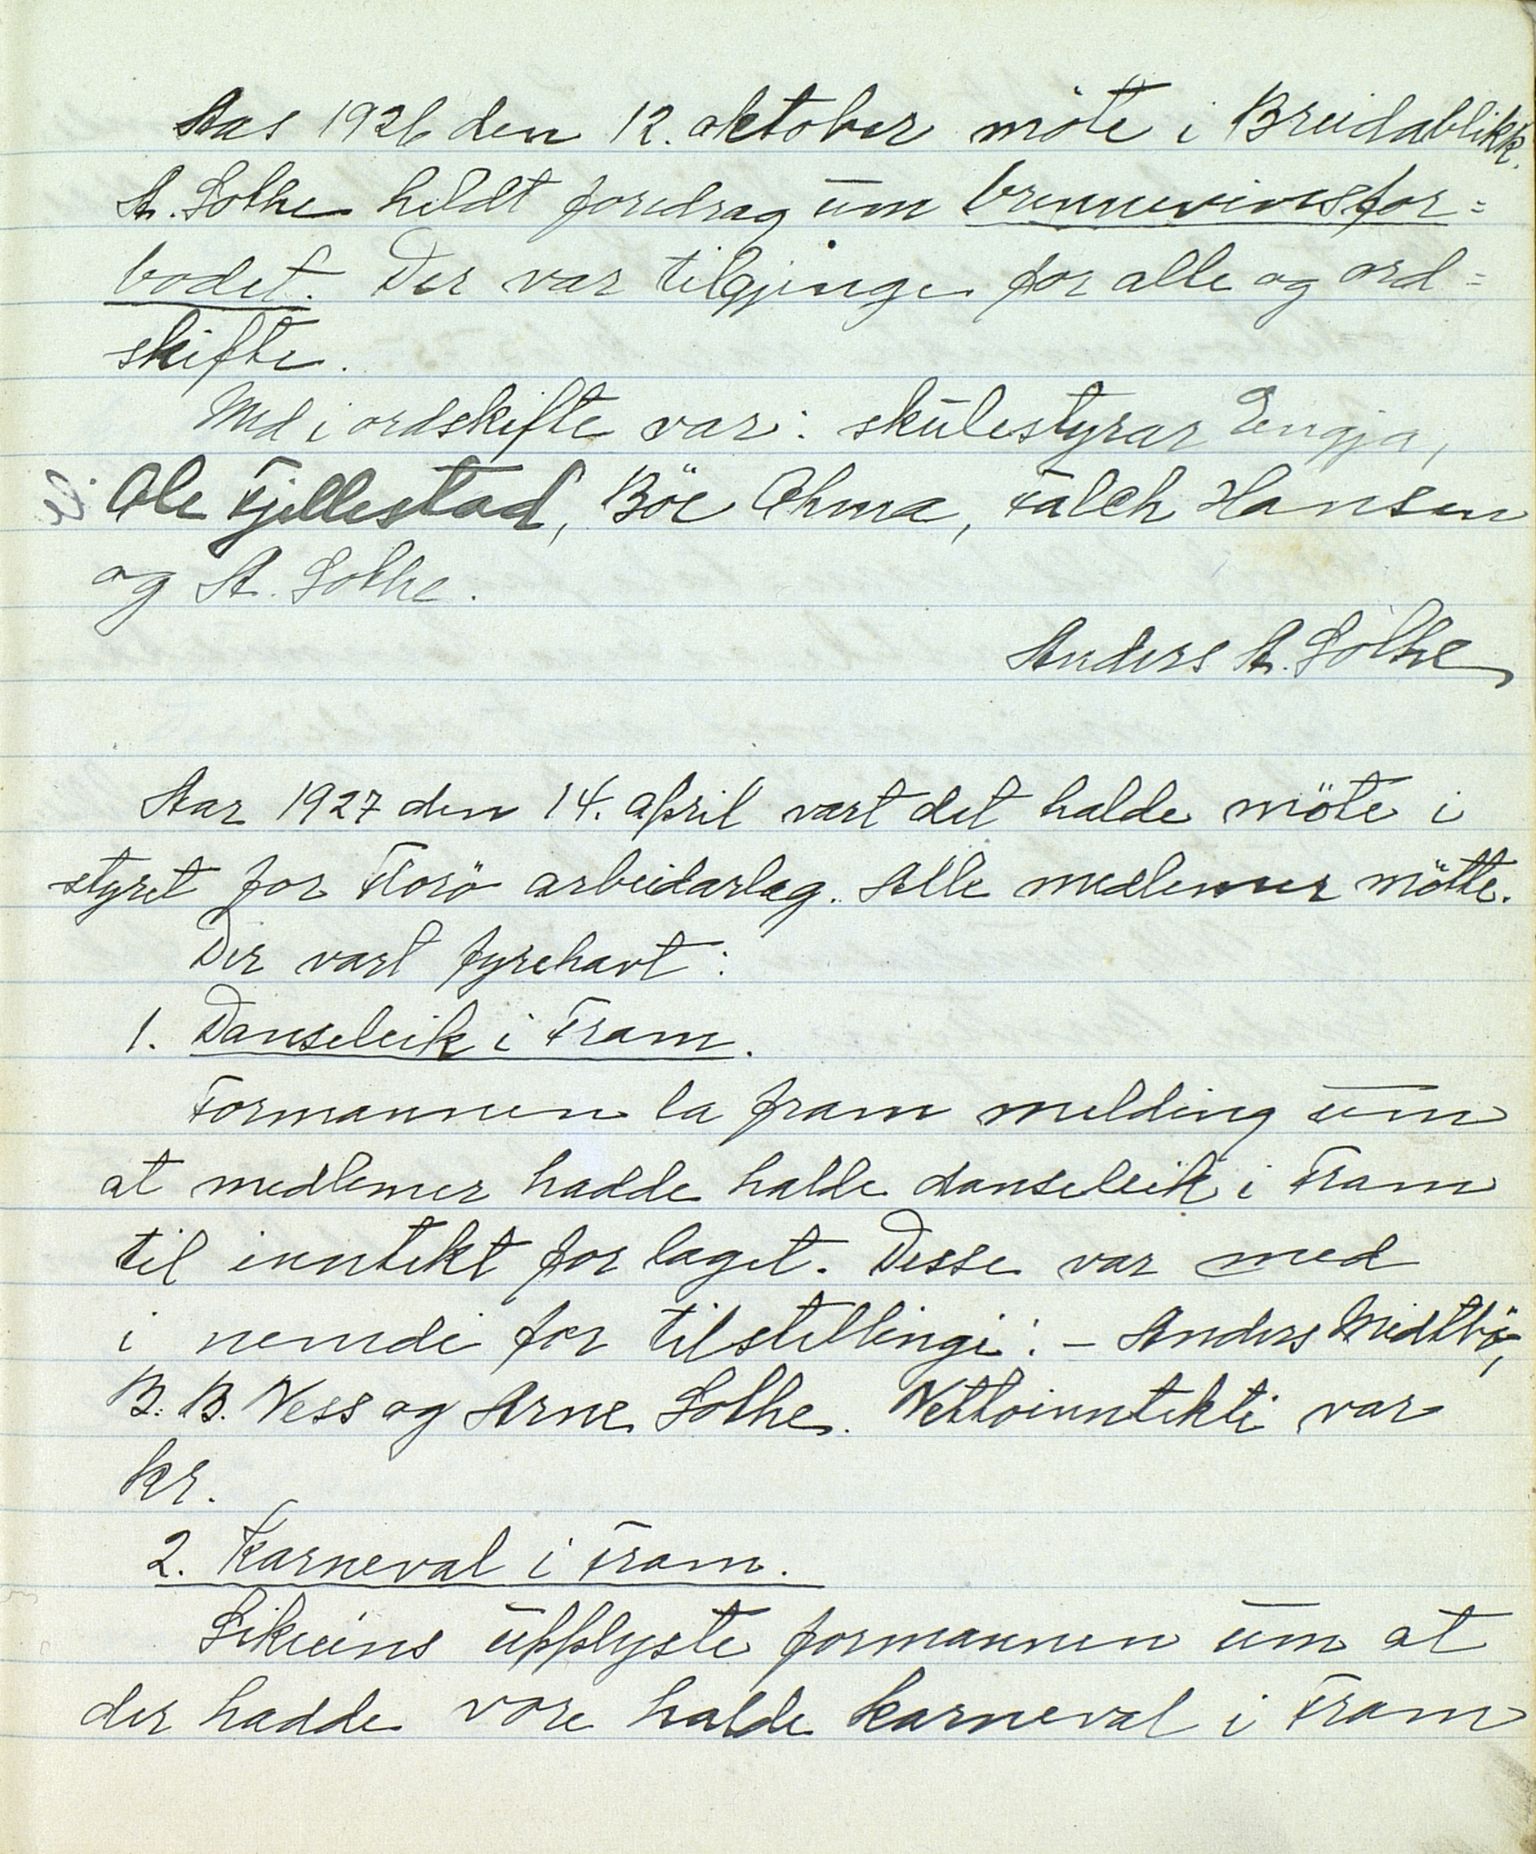 Aar 1926 den 12. oktober möte i Breidablikk.
A. Solhe heldt foredrag um brennevinsfor=
bodet. Der var tilgjenge for alle og ord=
skifte.
Med i ordskifte var: skulestyrar Engja,
Ole Fjellestad, Böe Ohma, Falch Hansen
og A. Solhe.
Anders A. Solhe
Aar 1927 den 14. april vart det halde möte i
styret for Florö arbeidarlag. Alle medlemer mötte.
Der vart fyrehavt:
1. Danseleik i Fram.
Formannen la fram melding um
at medlemer hadde halde danseleik i Fram
til inntekt for laget. Desse var med
i nemdi for tilstellingi: - Anders Midtbö,
B. B. Ness og Arne Solhe. Nettoinntekti var
kr.
2. Karneval i Fram.
Likeeins upplyste formannen um at
der hadde vore halde karneval i Fram